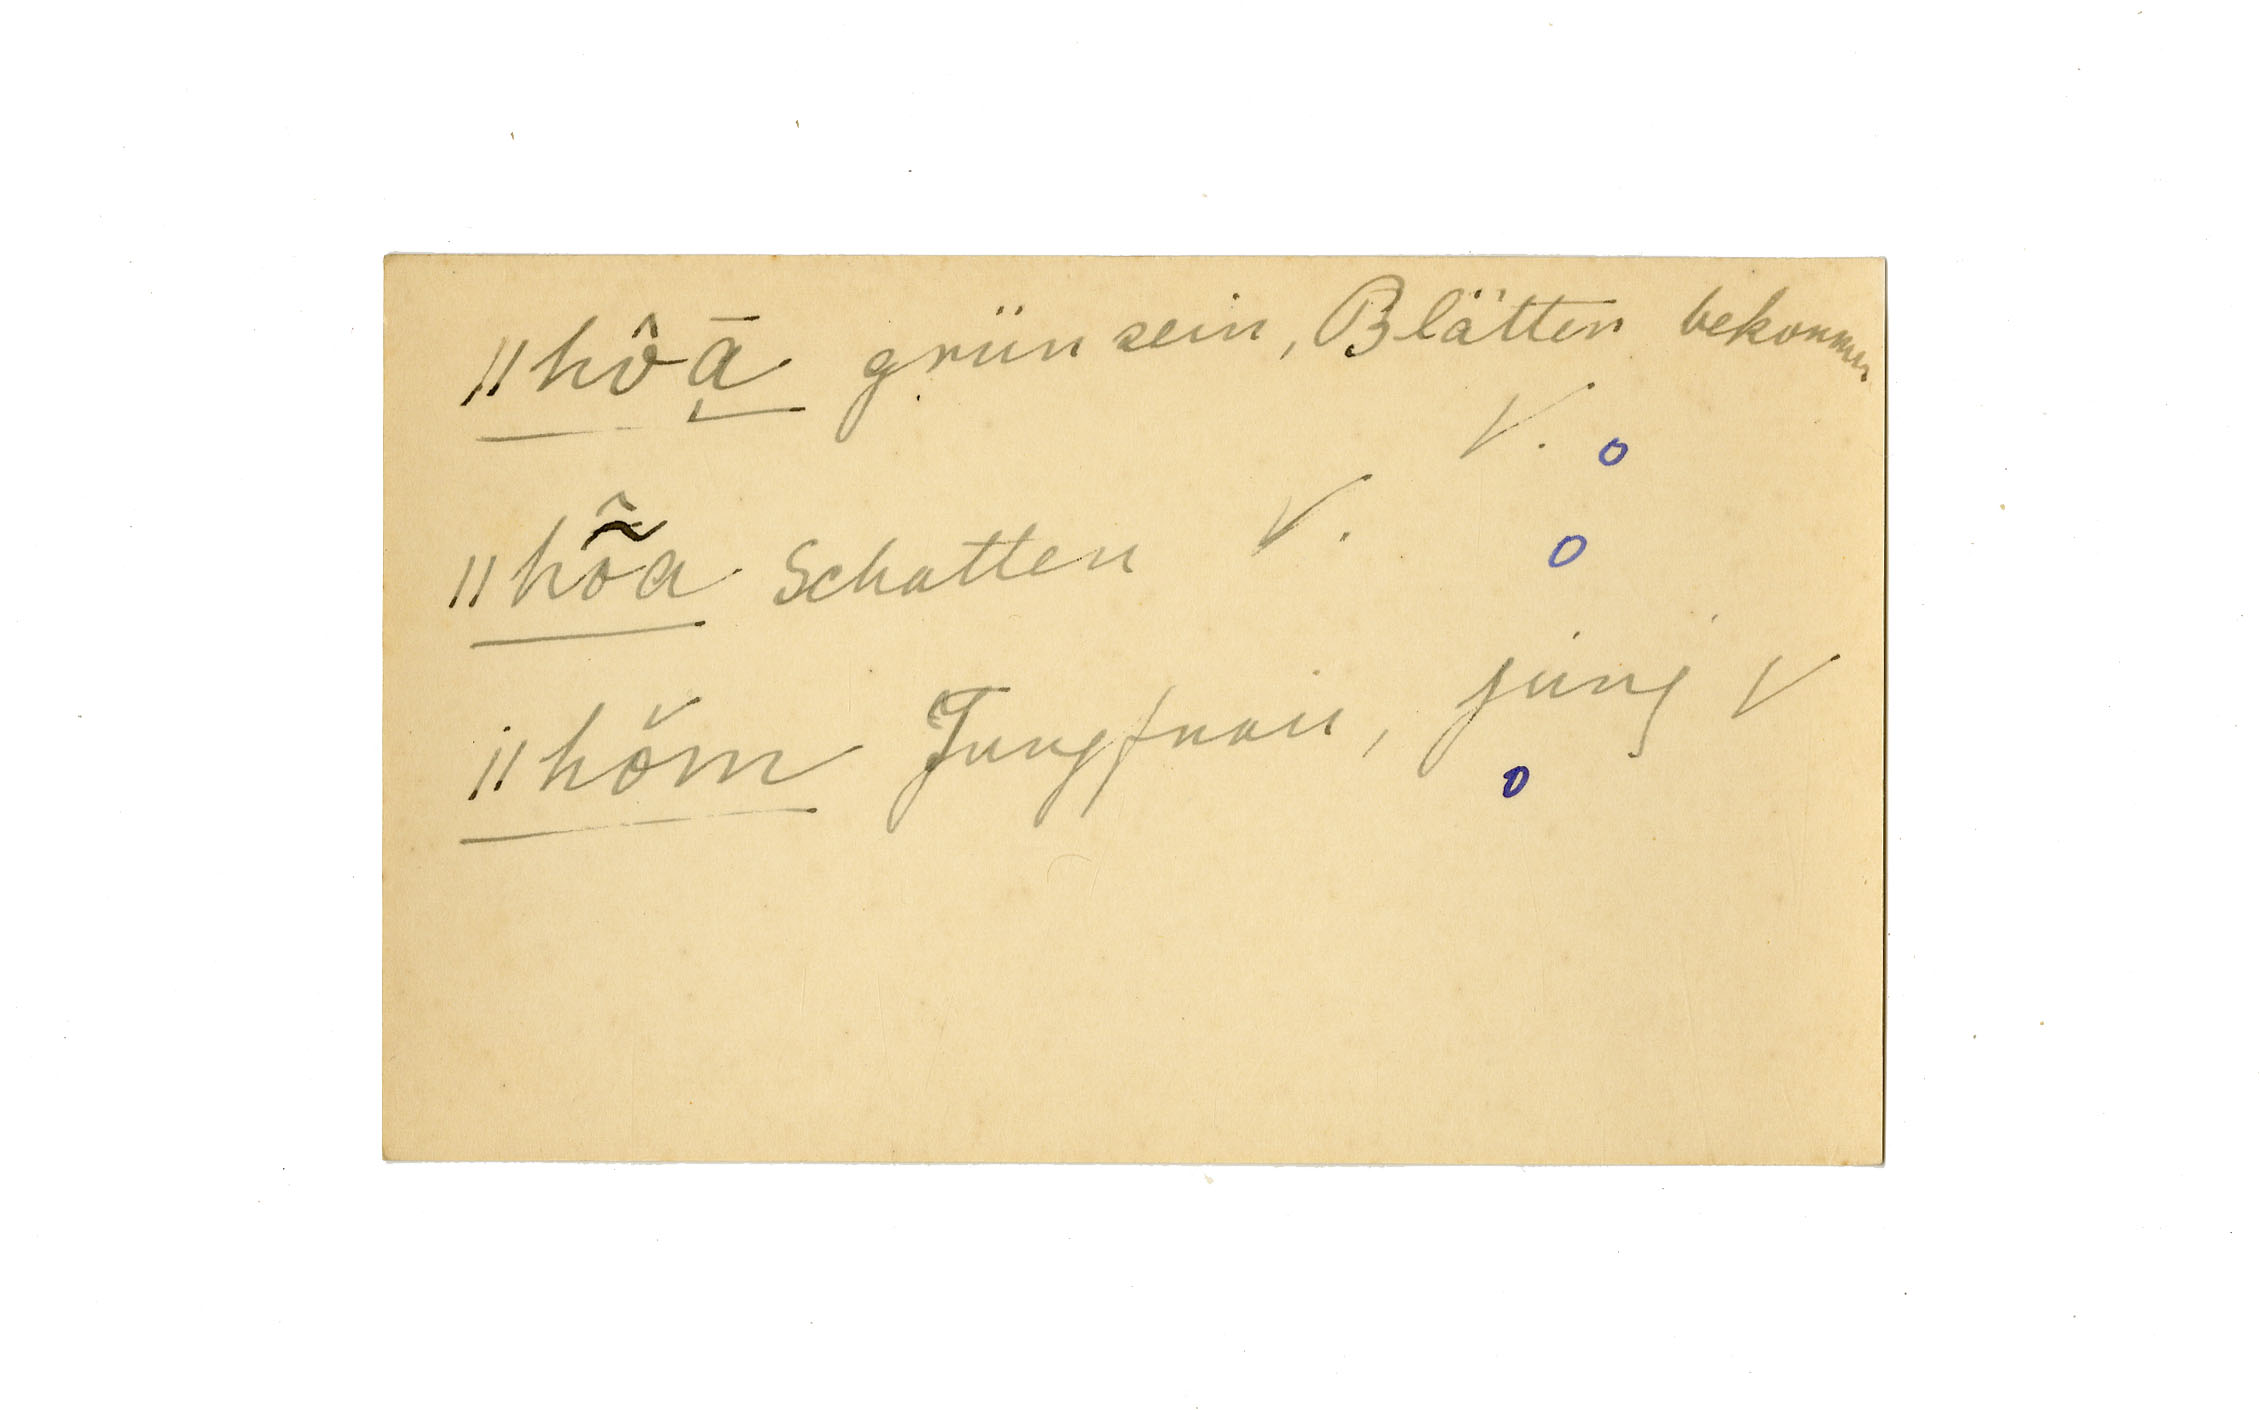 ǁhôā grün sein, Blätter bekommen
V. o
ǁhõ̂a Schatten V. o
ǁhŏm Jungfrau, jung V
o